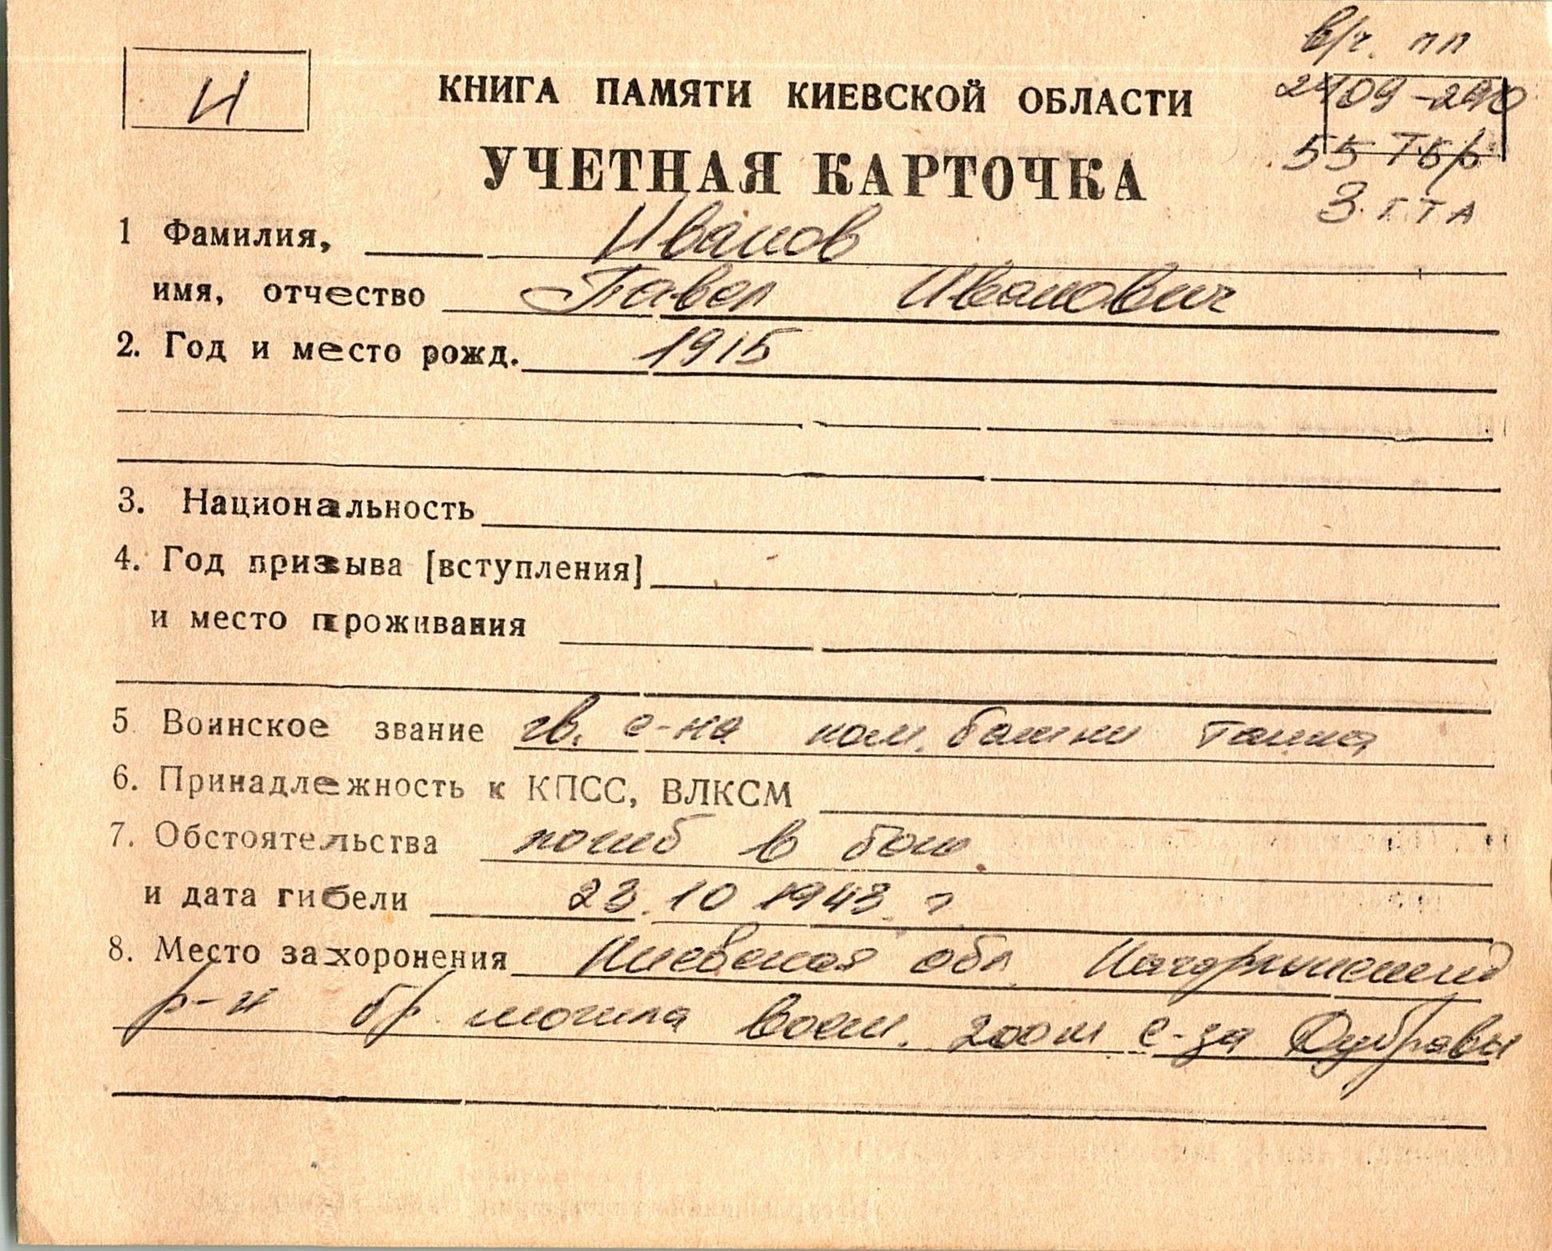 в/ч. пп
И
КНИГА ПАМЯТИ КИЕВСКОЙ ОБЛАСТИ
УЧЕТНАЯ КАРТОЧКА
55 Тбр
3 г Т А
1 Фамилия, Иванов
имя, отчество Павел Иванович
2. Год и место рожд. 1915
3. Национальность
4. Год призыва [вступления]
и место проживания
5 Воинское звание гв. с-на ком. башни танка
6. Принадлежность к КПСС, ВЛКСМ
7. Обстоятельства погиб в бою.
и дата гибели 23.10 1943 г
8. Место захоронения Киевская обл Кагарлыкский
р-н бр. могила вост. 200м с-за Дубравы